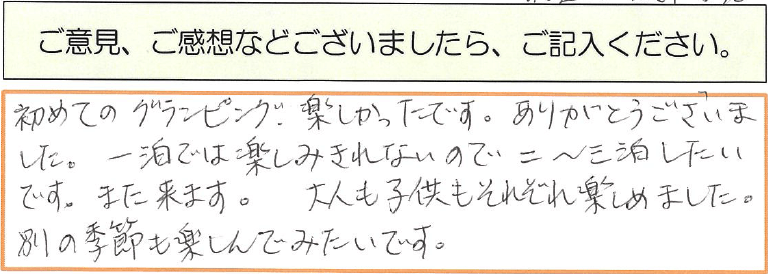 ご意見、ご感想などございましたら、ご記入ください。
初めてのグランピング、楽しかったです。ありがとうございま
した。一泊では楽しみきれないので二〜三泊したい
です。また来ます。 大人も子供もそれぞれ楽しめました。
別の季節も楽しんでみたいです。